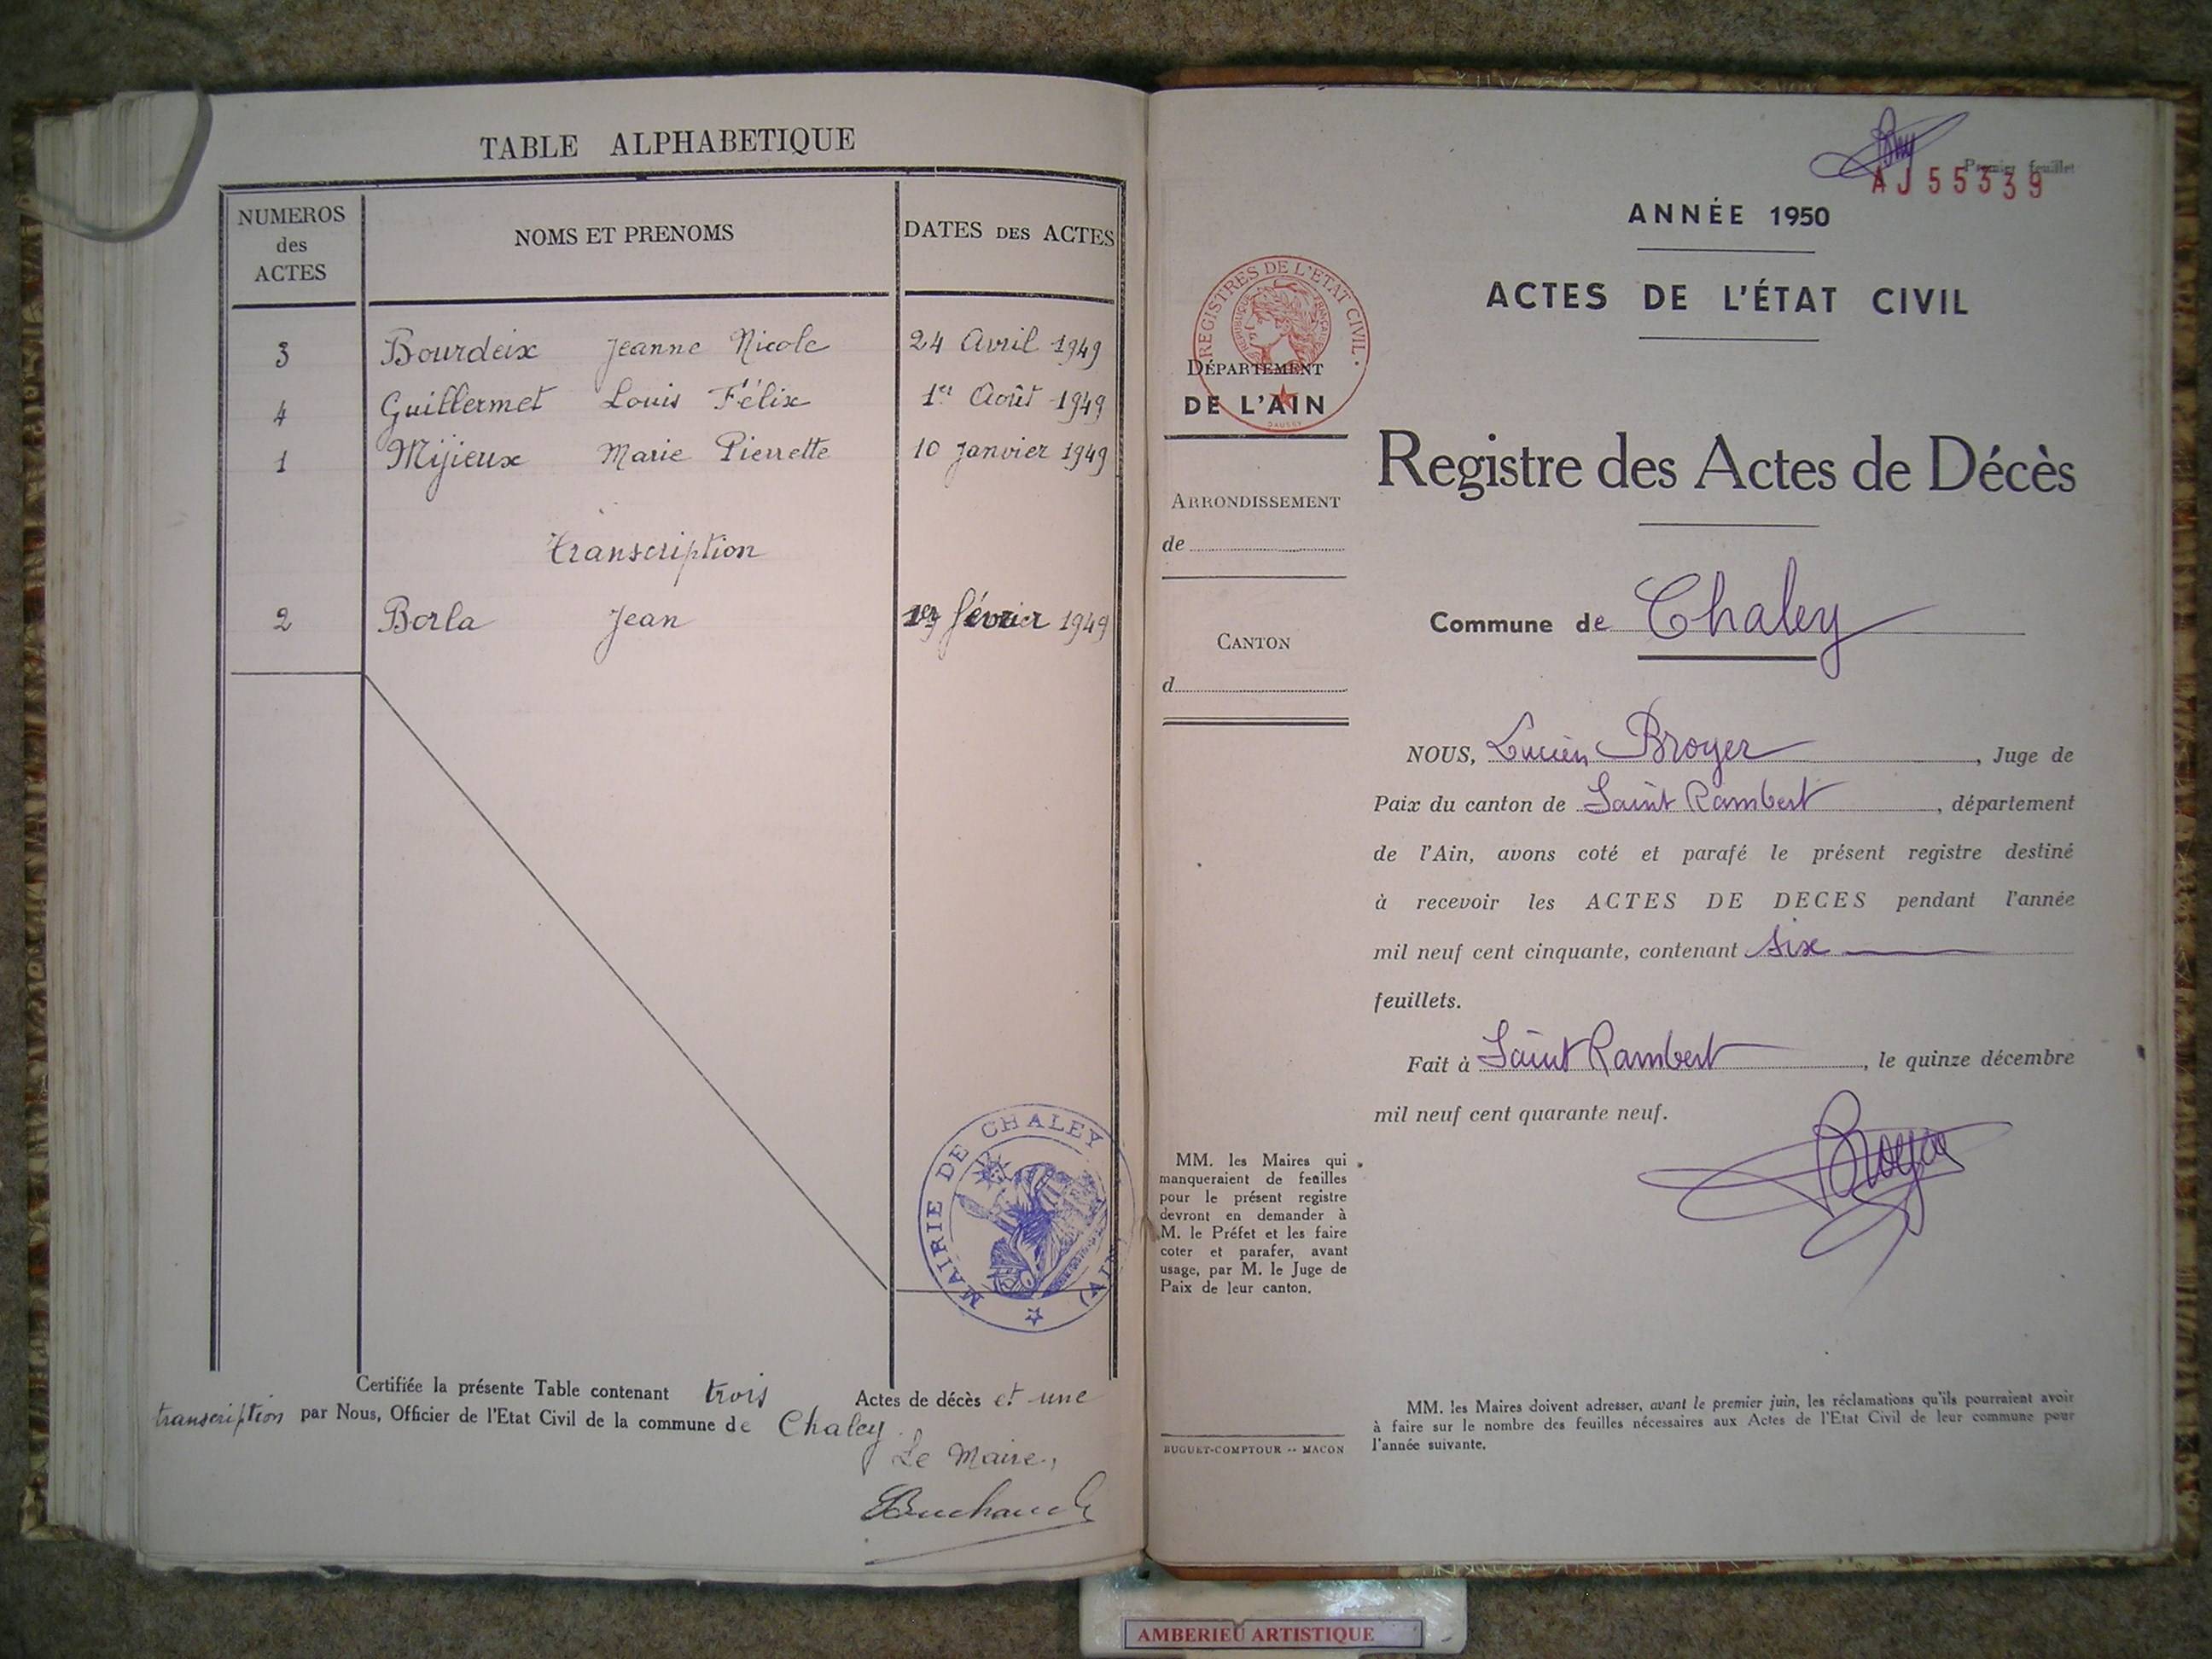 TABLE ALPHABETIQUE
NUMEROS des ACTES
NOMS ET PRENOMS
DATES DES ACTES
3 Bourdeix Jeanne Nicole 24 Avril 1949
4 Guillermet Louis Félix 1er Août 1949
1 Mijieux Marie Pierrette 10 Janvier 1949
transcription
2 Borla Jean février 1949
MAIRIE DE CHALEY (AIN)
Certifiée la présente Table contenant trois Actes de décès et une
transcription par Nous, Officier de l'Etat Civil de la commune de Chaley.
Le Maire,
Premier feuillet
AJ 55339
ANNÉE 1950
ACTES DE L'ÉTAT CIVIL
REGISTRES DE L'ETAT CIVIL
REPUBLIQUE FRANÇAISE
DÉPARTEMENT
DE L'AIN
Registre des Actes de Décès
ARRONDISSEMENT
de
Commune de Chaley
CANTON
d
NOUS, Lucien Broyer, Juge de
Paix du canton de Saint Rambert, département
de l'Ain, avons coté et parafé le présent registre destiné
à recevoir les ACTES DE DECES pendant l'année
mil neuf cent cinquante, contenant six
feuillets.
Fait à Saint Rambert, le quinze décembre
mil neuf cent quarante neuf.
Broyer
MM. les Maires qui
manqueraient de feuilles
pour le présent registre
devront en demander à
M. le Préfet et les faire
coter et parafer, avant
usage, par M. le Juge de
Paix de leur canton.
MM. les Maires doivent adresser, avant le premier juin, les réclamations qu'ils pourraient avoir
à faire sur le nombre des feuilles nécessaires aux Actes de l'Etat Civil de leur commune pour
l'année suivante.
BUGUET-COMPTOUR -- MACON
AMBERIEU ARTISTIQUE